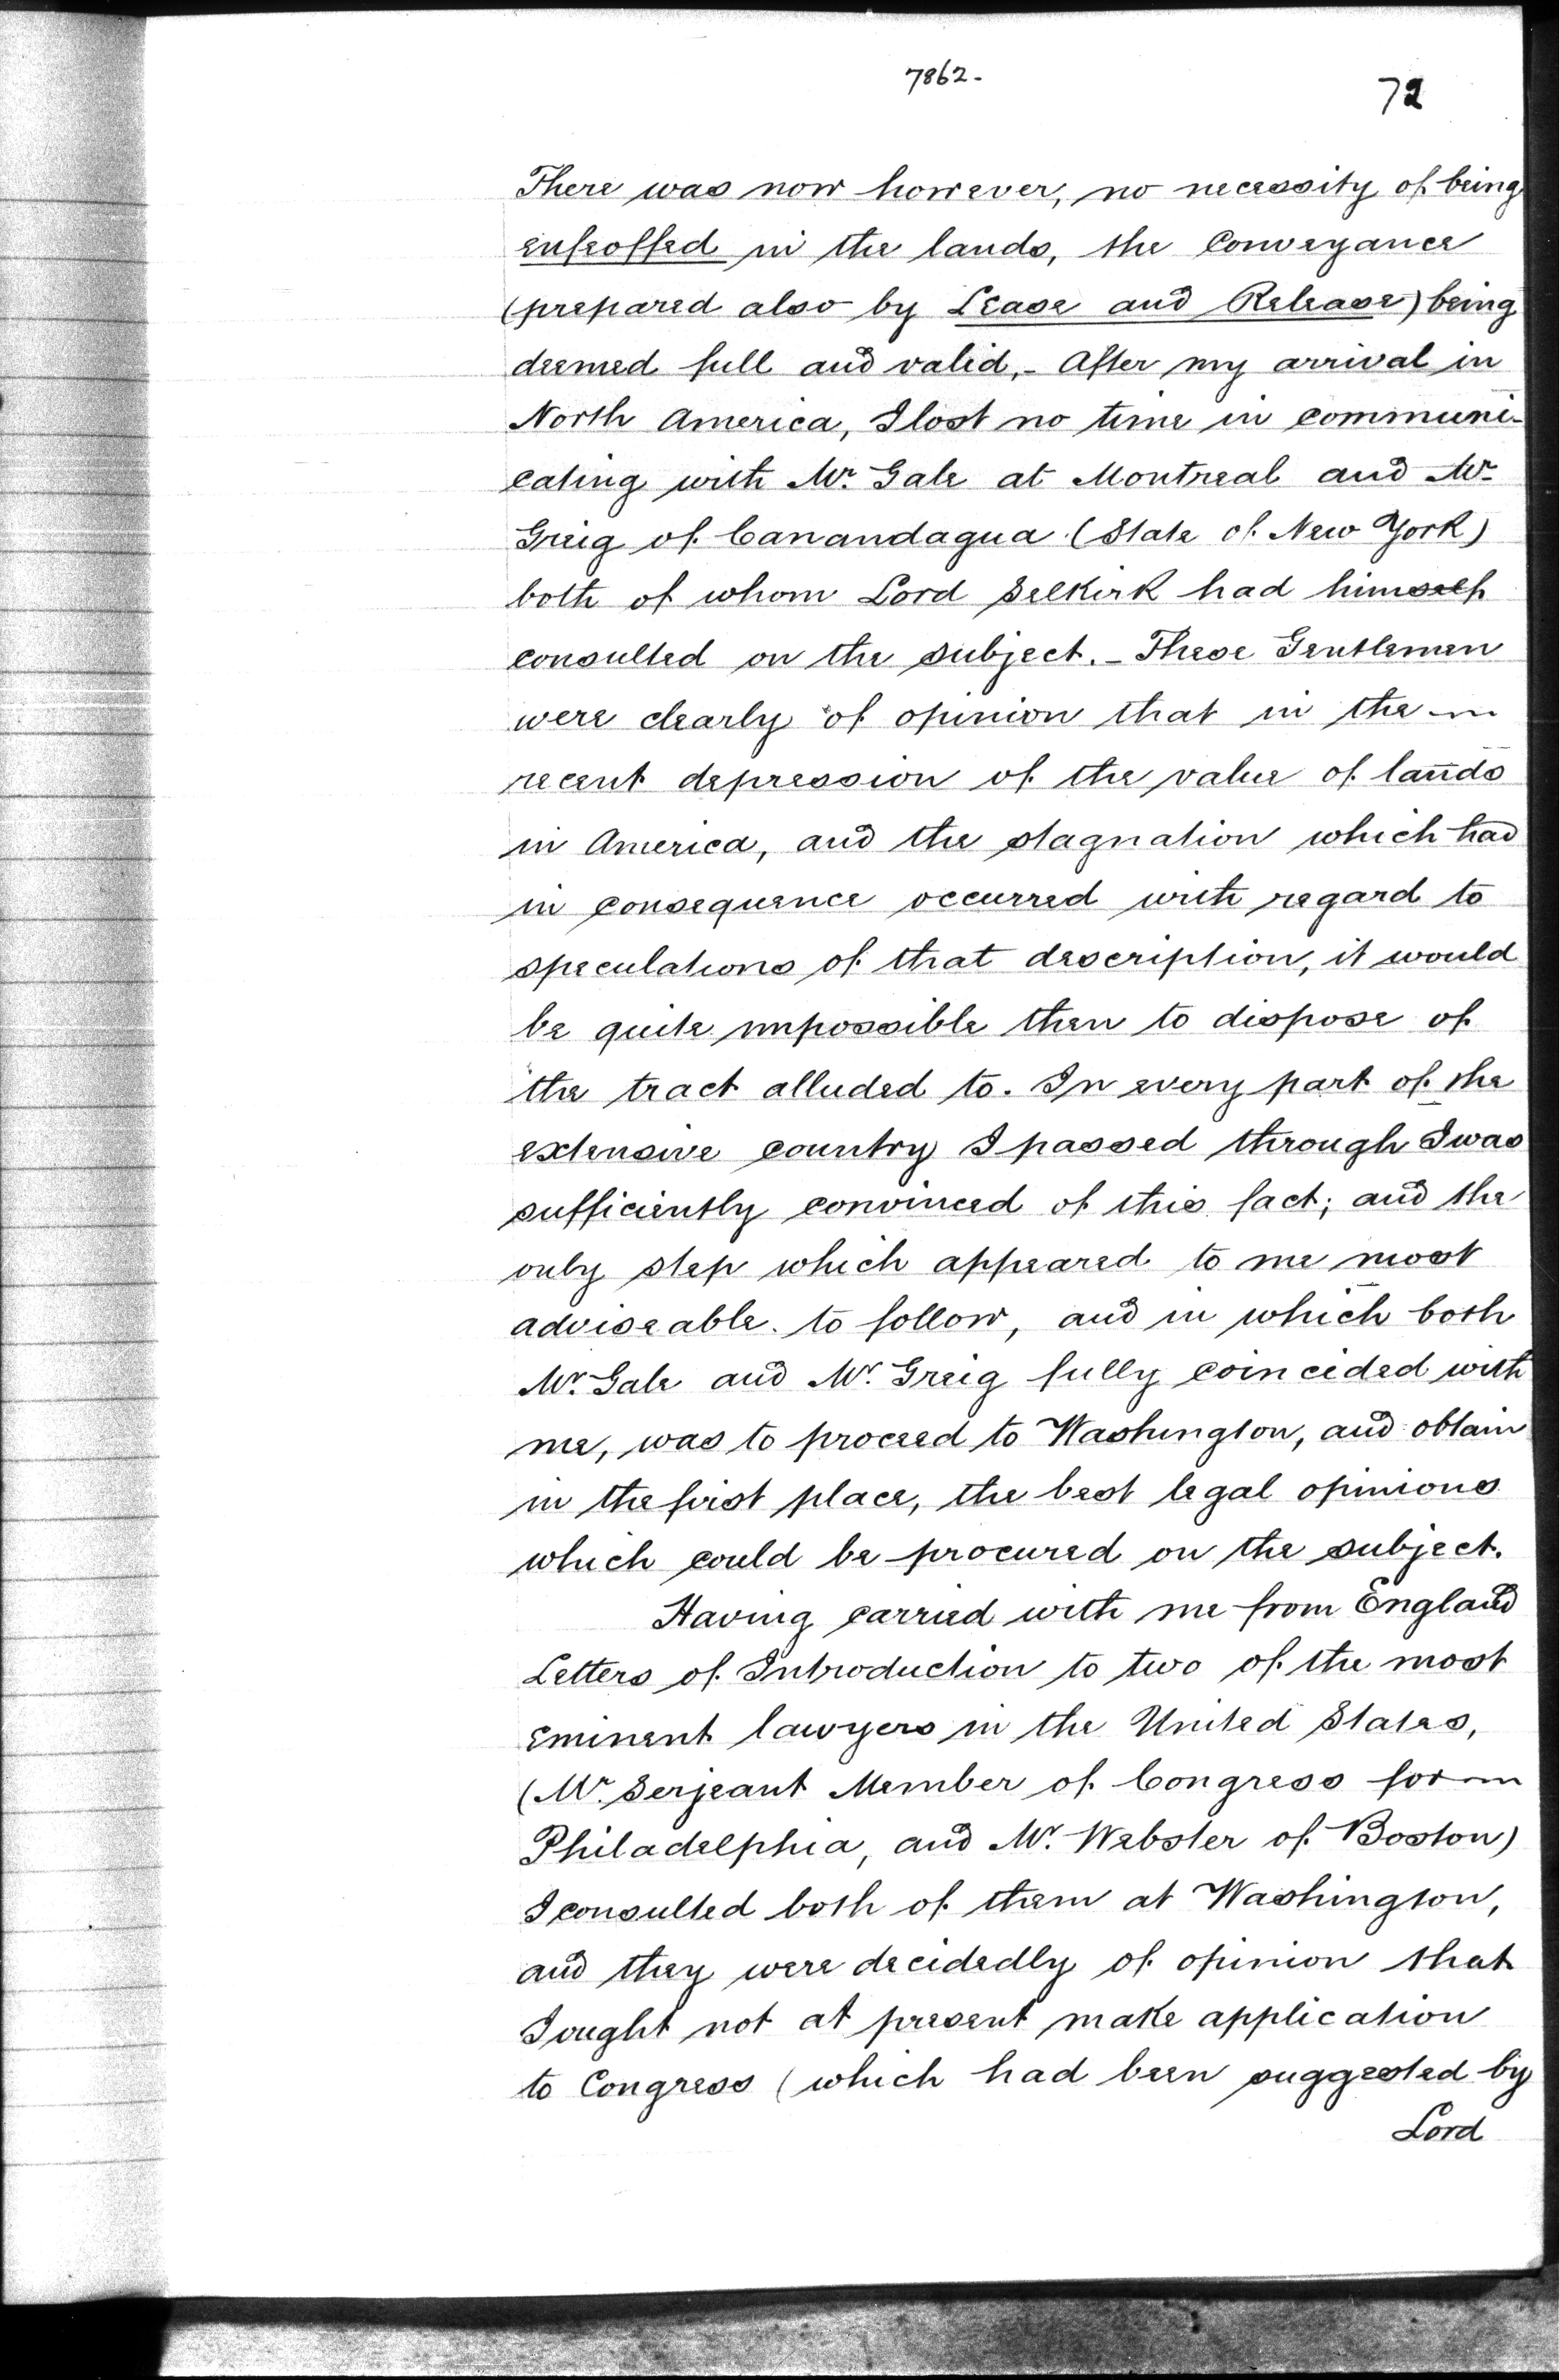 7862-
72
There was now however, no necessity of being
enfeoffed in the lands, the Conveyance
(prepared also by Lease and Release) being
deemed full and valid,- After my arrival in
North America, I lost no time in communi-
cating with Mr. Gale at Montreal and Mr.
Greig of Canandagua (State of New York)
both of whom Lord Selkirk had himself
consulted on the subject.- These Gentlemen
were clearly of opinion that in the
recent depression of the value of lands
in America, and the stagnation which had
in consequence occurred with regard to
speculations of that description, it would
be quite impossible then to dispose of
the tract alluded to. In every part of the
extensive country I passed through I was
sufficiently convinced of this fact; and the
only step which appeared to me most
adviseable to follow, and in which both
Mr. Gale and Mr. Greig fully coincided with
me, was to proceed to Washington, and obtain
in the first place, the best legal opinions
which could be procured on the subject.
Having carried with me from England
Letters of Introduction to two of the most
eminent lawyers in the United States,
(Mr. Serjeant Member of Congress for
Philadelphia, and Mr. Webster of Boston)
I consulted both of them at Washington,
and they were decidedly of opinion that
I ought not at present make application
to Congress (which had been suggested by
Lord